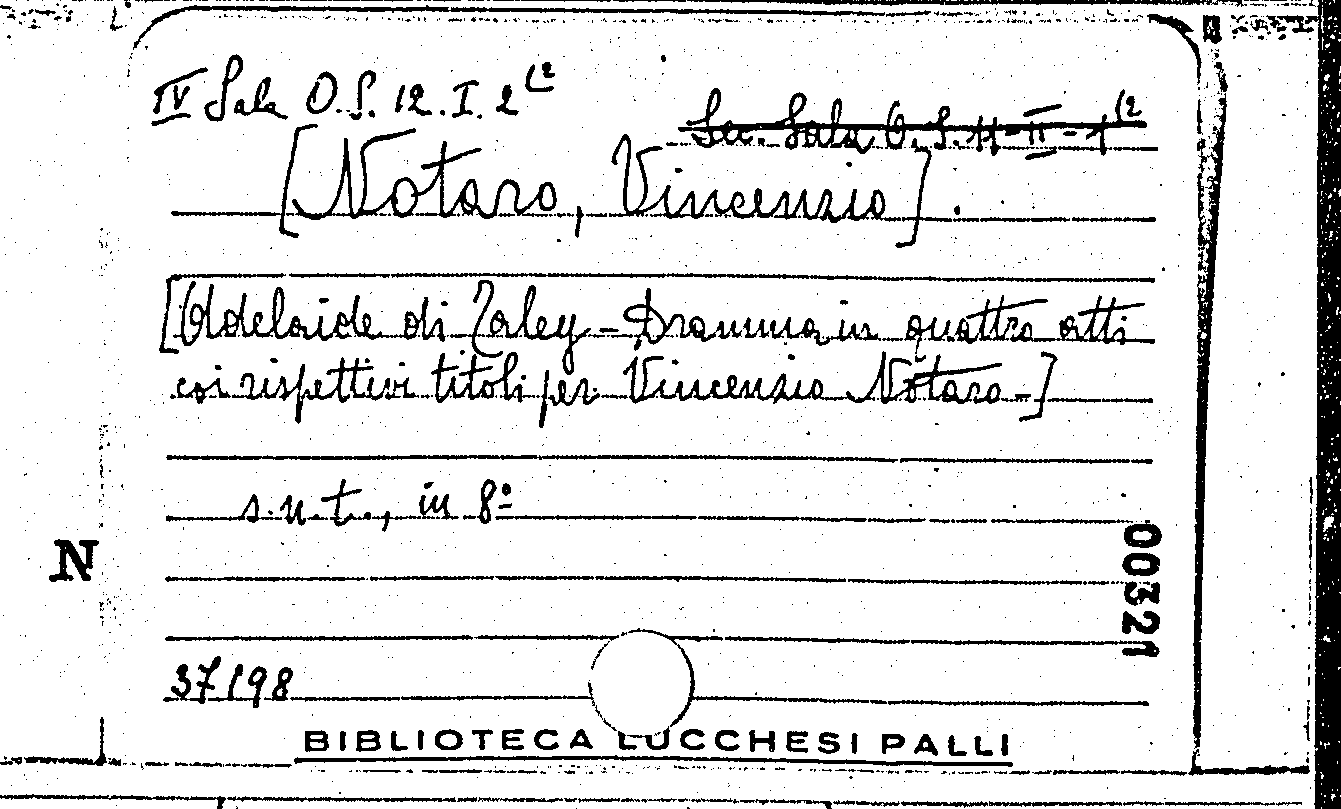 IV Sala O.S. 12. I. 2 (2
Sec. Sala O. S. 11-II-1 (2
[Notaro, Vincenzio].
[Adelaide di Zaley - Dramma in quattro atti
coi rispettivi titoli per Vincenzio Notaro -]
s.n.t., in 8º
N
00321
37198
BIBLIOTECA LUCCHESI PALLI